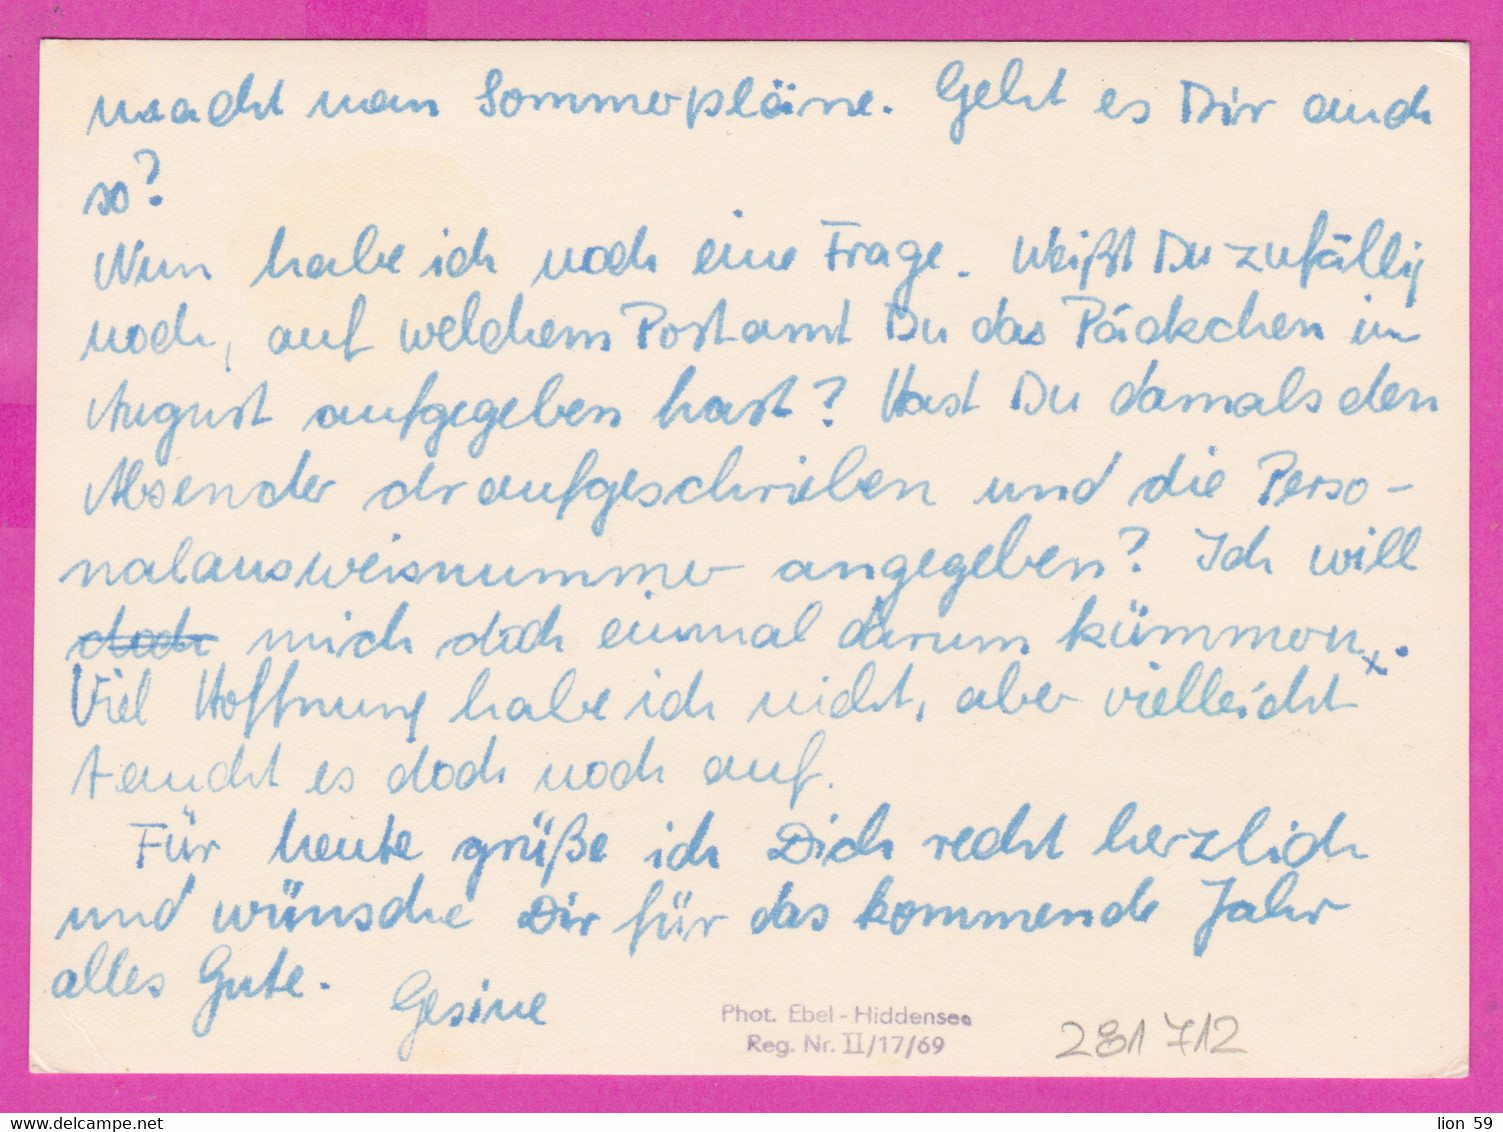 macht man Sommerpläne. Geht es Dir auch
so?
Nun habe ich noch eine Frage. Weißt Du zufällig
noch, auf welchem Postamt Du das Päckchen im
August aufgegeben hast? Hast Du damals den
Absender draufgeschrieben und die Perso-
nalausweisnummer angegeben? Ich will
doch mich doch einmal darum kümmern.
Viel Hoffnung habe ich nicht, aber vielleicht
taucht es doch noch auf.
Für heute grüße ich Dich recht herzlich
und wünsche Dir für das kommende Jahr
alles Gute.
Gesine
Phot. Ebel-Hiddensee
Reg. Nr. II/17/69
281712
www.delcampe.net
lion 59